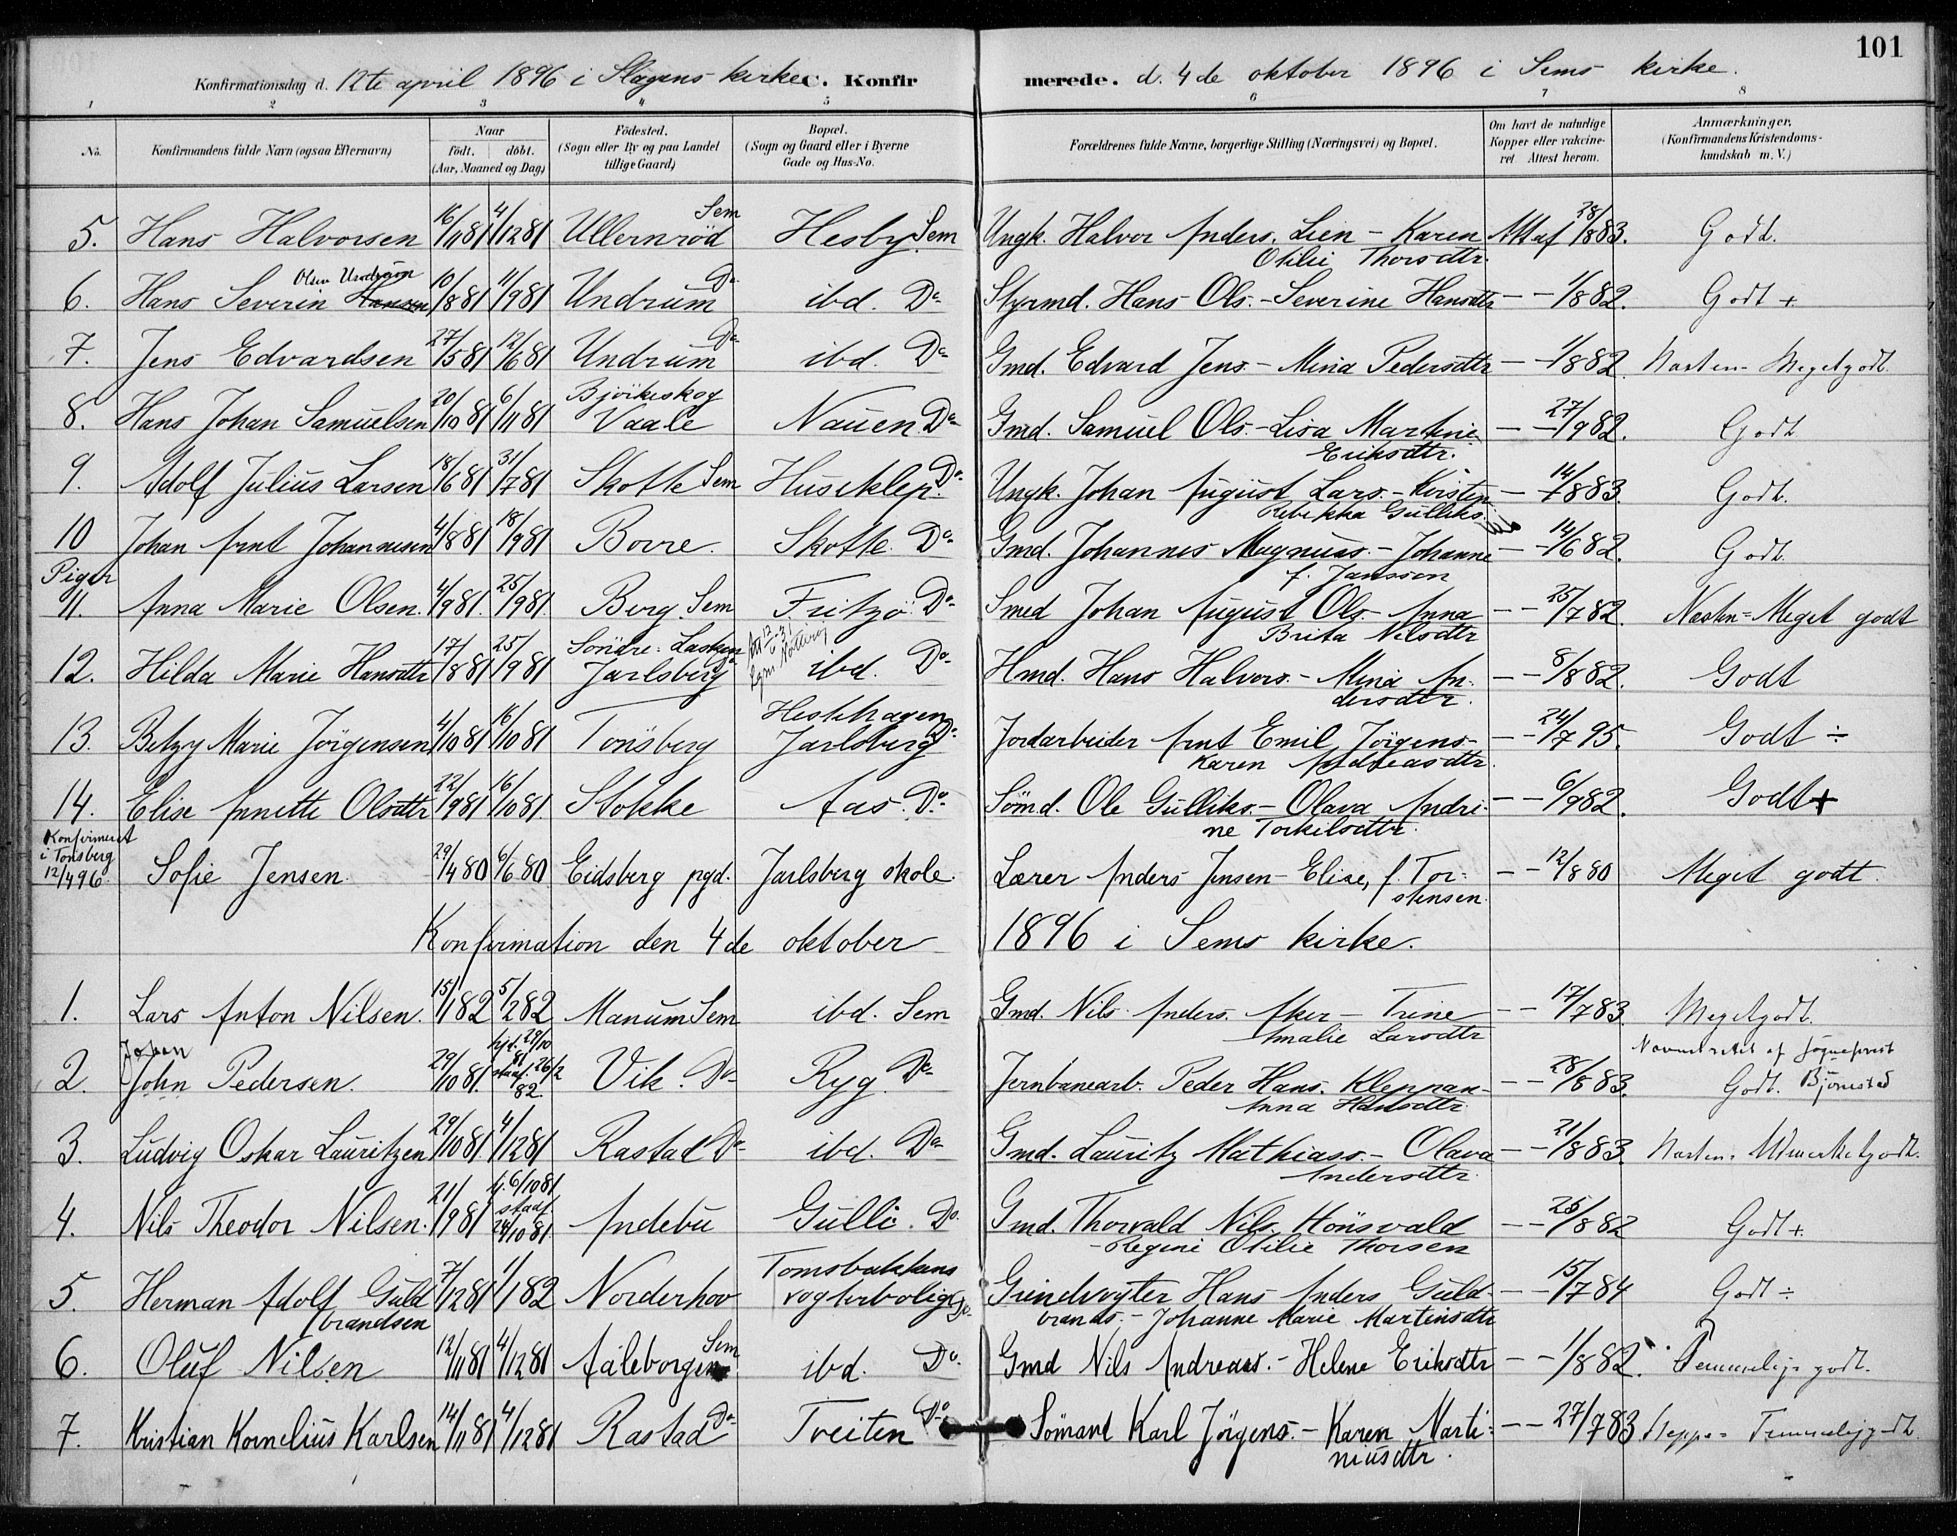 101
Konfirmationsdag d. 12te april 1896 i Slagens kirke C. Konfirmerede. d. 4de oktober 1896 i Sems kirke.
1 2 3 4 5 6 7 8
No. Konfirmandens fulde Navn (ogsaa Efternavn) Naar født, døbt. (Aar, Maaned og Dag) Fødested. (Sogn eller By og paa Landet tillige Gaard) Bopæl. (Sogn og Gaard eller i Byerne Gade og Hus-No. Forældrenes fulde Navne, borgerlige Stilling (Næringsvei) og Bopæl. Om havt de naturlige Kopper eller vakcineret Attest herom. Anmærkninger. (Konfirmandens Kristendomskundskab m. V.)
5. Hans Halvorsen 16/11 81 4/12 81 Ullernröd Sem Hesby Sem Ungk. Halvor Anders. Lien - Karen Otilie Thorsdtr. Att af 28/8 83. Godt.
6. Hans Severin Hansen Olsen Undrum 10/8 81 4/9 81 Undrum Do ibd. Do Styrmd. Hans Ols. - Severine Hansdtr - - 1/8 82. Godt +
7. Jens Edvardsen 27/5 81 12/6 81 Undrum Do ibd. Do Gmd. Edvard Jens. - Mina Pedersdtr - - 1/8 82. Næsten - Meget godt.
8. Hans Johan Samuelsen 20/10 81 6/11 81 Bjvikeskog Vaale Nauen Do Gmd. Samuel Ols. - Lisa Martine Eriksdtr. - - 27/9 82. Godt
9. Adolf Julius Larsen 18/6 81 31/7 81 Skotte Sem Huseklep. Do Ungk. Johan August Lars. - Kirsten Rebekka Gulliks. - - 14/7 83. Godt.
10 Johan Arnt Johannesen 4/8 81 18/9 81 Borre. Skotte. Do Gmd. Johannes Magnuss. - Johanne f. Jansson - - 14/6 82. Godt.
Piger
11. Anna Marie Olsen. 4/9 81. 25/9 81. Berg. Sem Fritzö Do Smed Johan August Ols. - Anna Brita Nilsdtr - - 25/7 82. Næsten = Meget godt
12. Hilda Marie Hansdtr 17/8 81 25/9 81 Söndre Jarlsberg ibd. Do Hmd. Hans Halvors. - Mina Andersdtr. - - 8/8 82. Godt
13. Betzy Marie Jörgensen 4/10 81 16/10 81 Tönsberg Hestehagen Jarlsberg Do Jordarbeider Arnt Emil Jörgens - Karen Andreasdtr. - - 24/7 95. Godt ÷
14. Elise Annette Olsdtr 22/9 81 16/10 81 Stokke Aas. Do Sömd. Ole Gulliks. - Olava Andrine Torkilsdtr. - - 6/9 82. Godt +
Konfirmeret i Tönsberg 12/4 96. Sofie Jensen. 29/4 80 6/6 80 Eidsberg pgd. Jarlsberg skole. Lærer Anders Jensen - Elise, f. Torstensen. - - 12/8 80 Meget godt.
Konfirmation den 4de oktober 1896 i Sems kirke.
1. Lars Anton Nilsen. 15/1 82 5/2 82 Manum Sem ibd. Sem Gmd. Nils Anders. Aker - Trine Amalie Larsdtr - - 17/7 83. Meget godt.
2. John Johan Pedersen. 29/10 81. hjd. 29/10 81 stadf. 26/2 82. Vik. Do Ryg. Do Jernbanearb. Peder Hans. Kleppan - Anna Hansdtr. - - 28/8 83. Navnet rettet af sogneprest Bjonnstad Godt.
3. Ludvig Oskar Lauritzen 29/10 81 4/12 81 Rastad Do ibd. Do Gmd. Lauritz Mathiass. - Olava Andersdtr. - - 21/8 83. Næsten = Udmerket godt.
4. Nils Theodor Nilsen. 21/9 81 hj. 6/10 81 stadf. 24/10 81. Andebu Gulli. Do. Gmd. Thorvald Nils. Hönsvald - Regine Otilie Thorsen - - 25/8 82 Godt +
5. Herman Adolf Guldbrandsen 7/12 81 1/1 82 Norderhov Tomsbakkens vogterbolig Do Grindvogter Hans Anders Guldbrands. - Johanne Marie Martinsdtr - - 15/7 84 Godt ÷
6. Oluf Nilsen 12/11 81 4/12 81 Aaleborgen Sem ibd. Do. Gmd Nils Andreas. - Helene Eriksdtr - - 1/8 82. Temmelig godt.
7. Kristian Kornelius Karlsen 14/11 81 4/12 81 Rastad Do Treiten Do Sömand Karl Jörgens. - Karen Martiniusdtr. - - 27/7 83 Neppe = Temmelig godt.